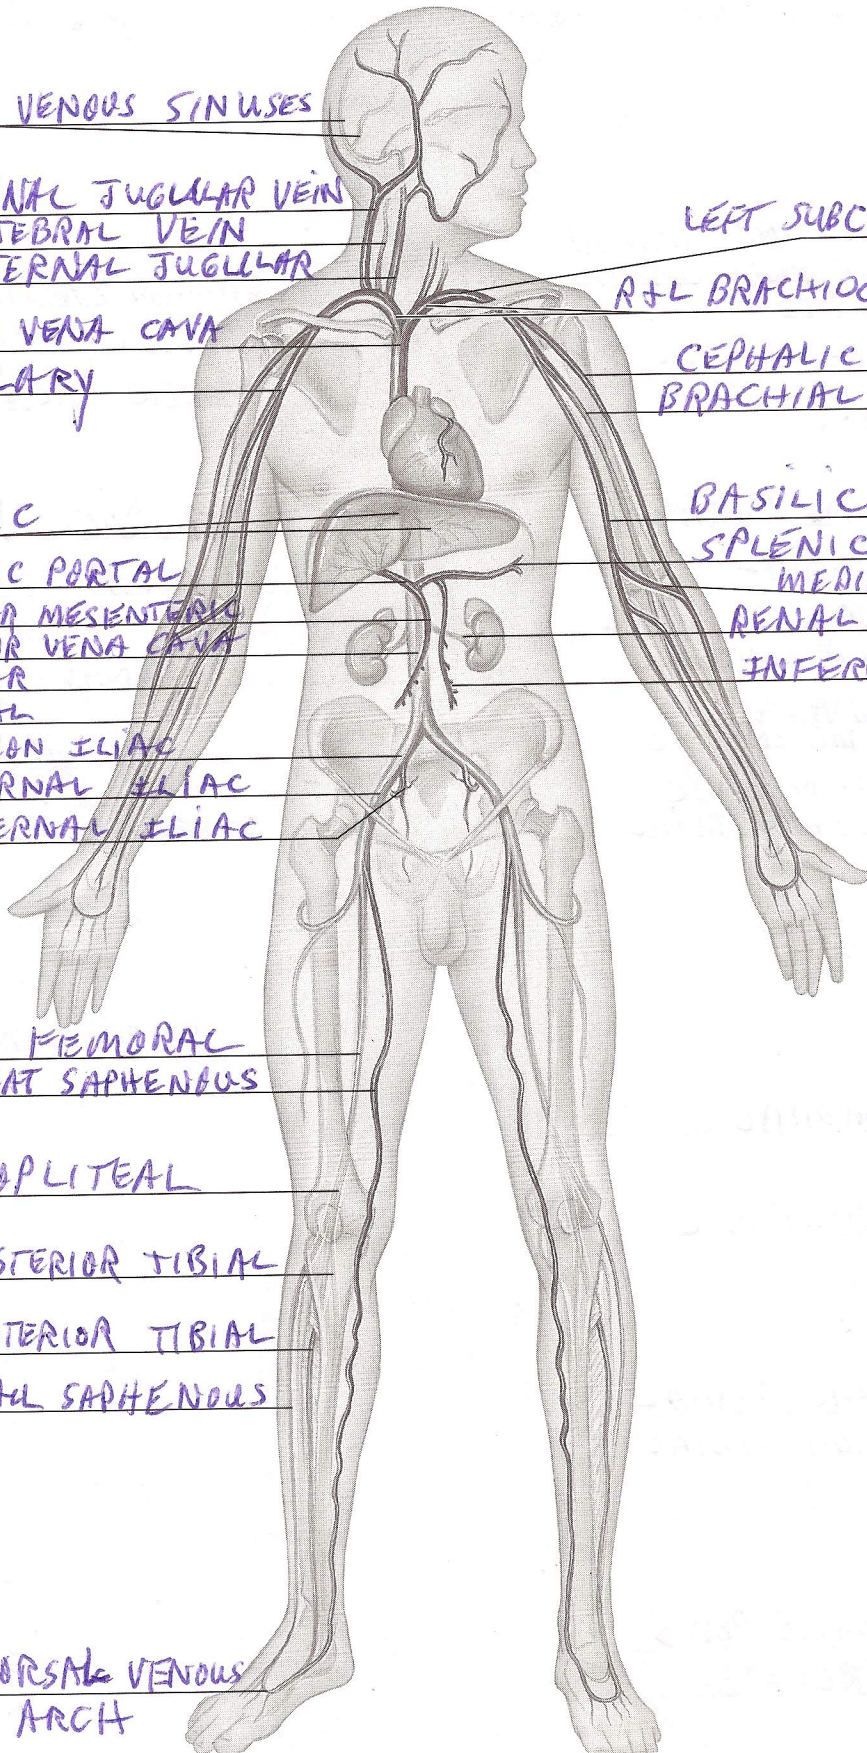 VENOUS SINUSES
NAL JUGULAR VEIN
TEBRAL VEIN
TERNAL JUGULAR
VENA CAVA
LARY
IC
C PORTAL
R MESENTERIC
OR VENA CAVA
R
AL
ON ILIAC
RNAL ILIAC
ERNAL ILIAC
FEMORAL
AT SAPHENOUS
OPLITEAL
STERIOR TIBIAL
TERIOR TIBIAL
ALL SAPHENOUS
ORSAL VENOUS
ARCH
LEFT SUBC
R+L BRACHIOC
CEPHALIC
BRACHIAL
BASILIC
SPLENIC
MEDI
RENAL
INFER